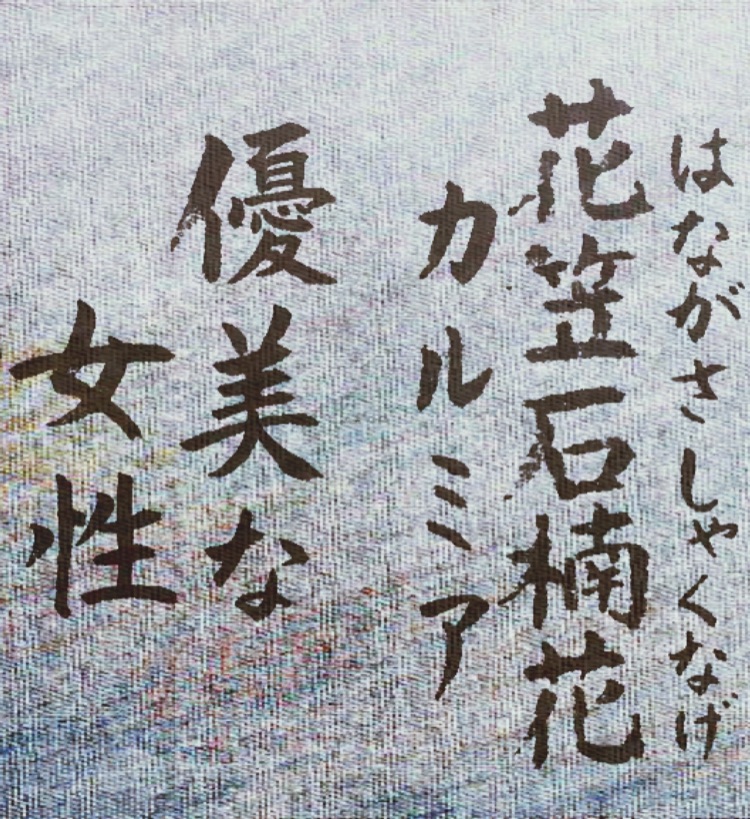 はながさしゃくなげ
花笠石楠花
カルミア
優美な
女性